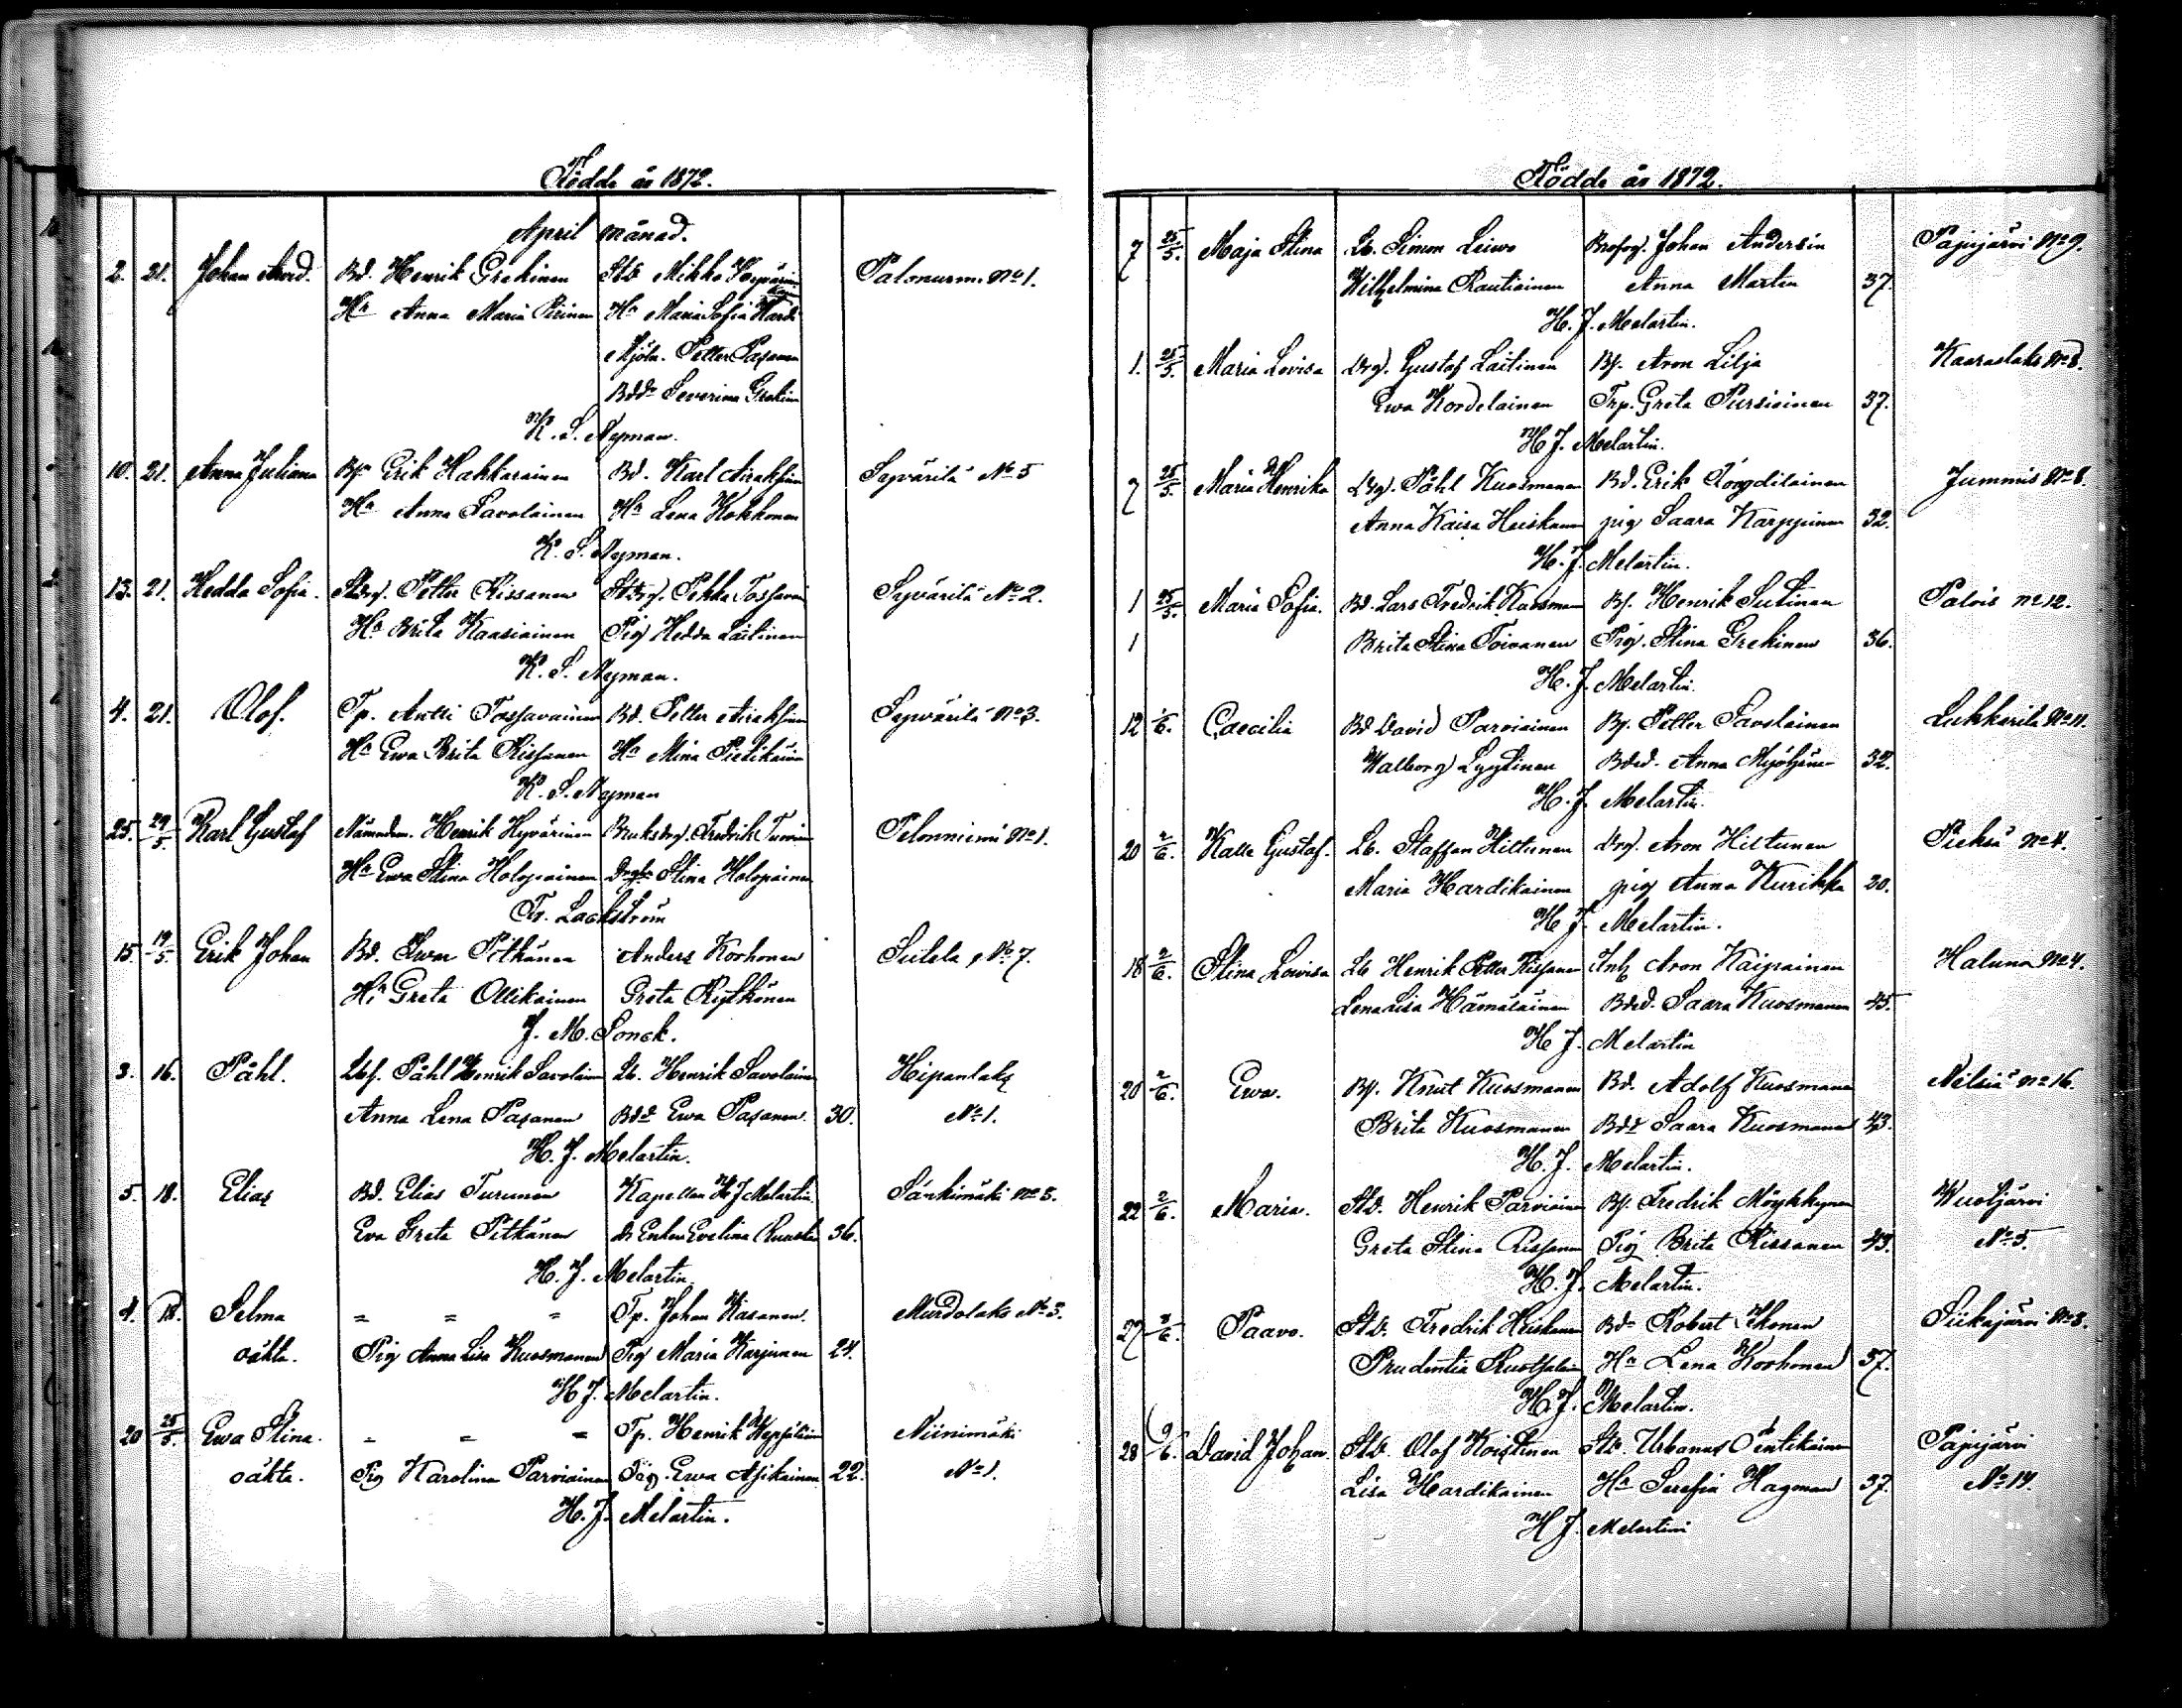 Födde år 1872.
April månad.
2. 21. Johan Arvid. Bd. Henrik Grekinen Std Mikko Hyvärinen Palonurmi No 1.
Hu Anna Maria Pirinen Hu Maria Sofia Hardi
Mjöln. Petter Pasanen
Bdd. Severina Grekinen
K. S. Nyman.
10. 21. Anna Juliana Bf. Erik Hakkarainen Bd. Karl Airaksinen Syvärilä No 5
Hu Anna Savolainen Hu Lena Kokkonen
K. S. Nyman.
13. 21. Hedda Sofia. Stdrg. Petter Rissanen Stdrg. Pekka Tossavainen Syvärilä No 2.
Hu Brita Kaasiainen Pig Hedda Laitinen
K. S. Nyman.
4. 21. Olof. Tp. Antti Tossavainen Bd. Petter Airaksinen Syvärilä No 3.
Hu Ewa Brita Rissanen Hu Mina Pietikäinen
K. S. Nyman
25. 29/5. Karl Gustaf Nämndem. Henrik Hyvärinen Bruksdrg. Fredrik Pelonniemi No 1.
Hu Ewa Stina Holopainen Stina Holopainen
Fr. Lackström
15. 19/5. Erik Johan Bd. Iwar Pitkänen Anders Korhonen Sutela No 7.
Hu Greta Ollikainen Greta Rytkönen
J. M. Sonck.
3. 16. Påhl. Lbf. Påhl Henrik Savolainen Lb. Henrik Savolainen Hipanlaks
Anna Lena Pasanen Bdd Ewa Pasanen 30. No 1.
H. J. Melartin.
5. 18. Elias Bd. Elias Turunen Kapellan H J Melartin. Sänkimäki No 5.
Eva Greta Pitkänen Enkan Evelina 36.
H. J. Melartin.
4. 18. Selma = = = Tp. Johan Kasanen. Murdolaks No 3.
oäkta. Pig Anna Lisa Kuosmanen Pig Maria Karjunen 24.
H J. Melartin.
20 25/5. Ewa Stina. = = = Tp. Henrik Niinimäki
oäkta. Pig Karolina Parviainen Pig. Ewa Asikainen 22. No 1.
H. J. Melartin.
Födde år 1872.
7 25/5. Maja Stina Lb. Simon Leiwo Johan Andersin Pajujärvi No 9.
Wilhelmina Rautiainen Anna Martin 37.
H. J. Melartin.
1. 25/5. Maria Lovisa Drg. Gustaf Laitinen Bf. Aron Lilja Kaaraslaks No 8.
Ewa Kordelainen Trp. Greta Pursiainen 37.
H J. Melartin.
7 25/5. Maria Henrika Drg. Påhl Kuosmanen Bd. Erik Jummis No 8.
Anna Kaisa Heiskanen pig Saara Karppinen 32.
H. J. Melartin.
1 25/5. Maria Sofia. Bd. Lars Fredrik Kuosmanen Bf. Henrik Sutinen Palois No 12.
1 Brita Stina Toivanen Pig. Stina Grekinen 36.
H. J. Melartin.
12 1/6. Caecilia Bd David Parviainen Bf. Petter Savolainen Lukkarila No 11.
Walborg Lyytinen Bdrd. Anna 32.
H. J. Melartin.
20 2/6. Kalle Gustaf. Lb. Staffan Hiltunen Drg. Aron Hiltunen Pieksä No 4.
Maria Hardikainen pig Anna Kurikka 30.
H J. Melartin.
18 2/6. Stina Lowisa Lb Henrik Petter Rissanen Inh Aron Kaipainen Haluna No 4.
Lena Lisa Hämäläinen Bdrd. Saara Kuosmanen 45.
H J. Melartin
20 2/6. Ewa. Bf. Knut Kuosmanen Bd. Adolf Kuosmanen Nilsiä No 16.
Brita Kuosmanen Bdd Saara Kuosmanen 43.
H. J. Melartin.
22 2/6. Maria. Std. Henrik Parviainen Bf. Fredrik Möykkynen Wuotjärvi
Greta Stina Rissanen Pig Brita Rissanen 43. No 5.
H. J. Melartin.
27 8/6. Paavo. Std. Fredrik Heiskanen Bd Robert Ikonen Siikajärvi No 8.
Prudentia Hu Lena Korhonen 37.
H. J. Melartin.
28 9/6. David Johan. Std. Olof Koistinen Std. Urbanus Pentikäinen Pajujärvi
Lisa Hardikainen Hu Serefia Hagman 37. No 14.
H J. Melartin